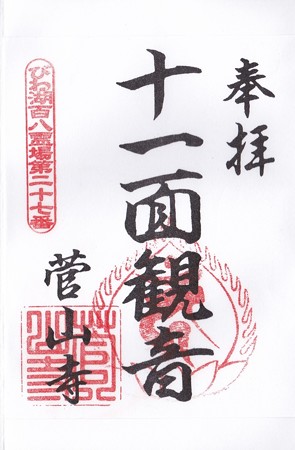 奉拝
十一面観音
びわ湖百八霊場第二十七番
菅山寺